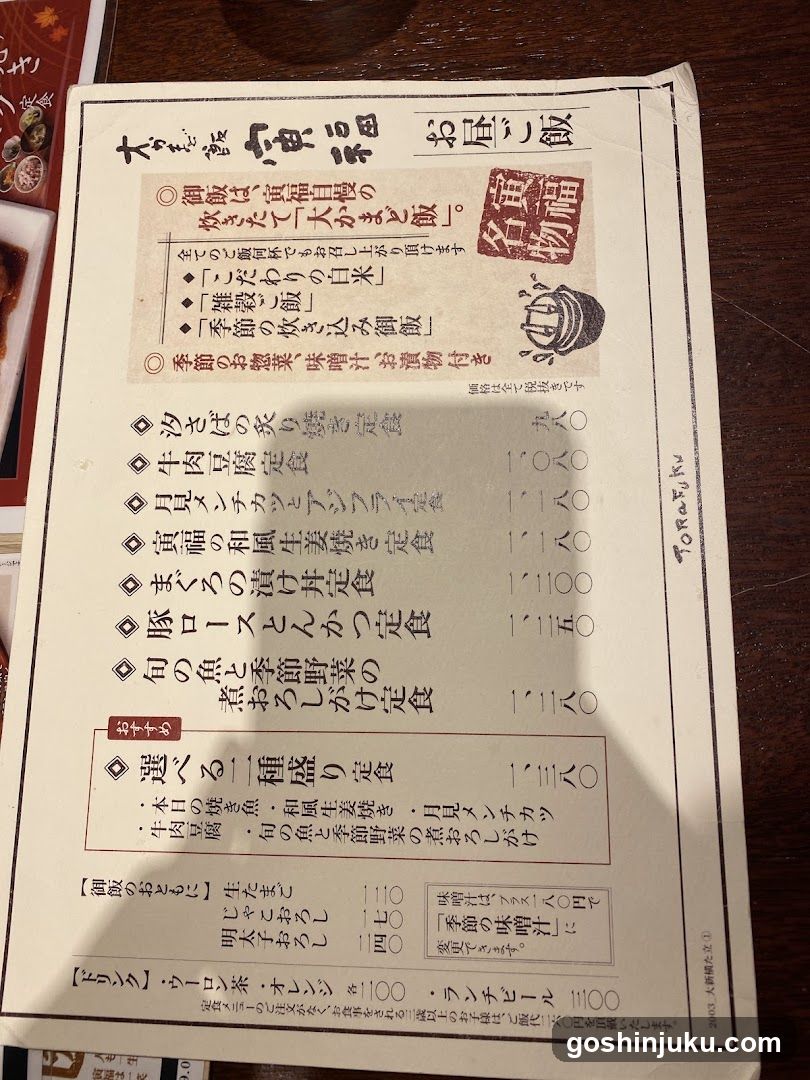 お昼ご飯
大かまど飯 寅福
寅福名物
◎御飯は、寅福自慢の
炊きたて「大かまど飯」。
全てのご飯何杯でもお召し上がり頂けます
◆「こだわりの白米」
◆「雑穀ご飯」
◆「季節の炊き込み御飯」
◎季節のお惣菜、味噌汁、お漬物付き
価格は全て税抜きです
汐さばの炙り焼き定食 九八〇
牛肉豆腐定食 一、〇八〇
月見メンチカツとアジフライ定食 一、一八〇
寅福の和風生姜焼き定食 一、一八〇
まぐろの漬け丼定食
豚ロースとんかつ定食
旬の魚と季節野菜の
煮おろしがけ定食
おすすめ
選べる二種盛り定食 一、三八〇
・本日の焼き魚・和風生姜焼き・月見メンチカツ
・牛肉豆腐・旬の魚と季節野菜の煮おろしがけ
【御飯のおともに】生たまご
じゃこおろし 一七〇
明太子おろし 二四〇
味噌汁は、プラス一八〇円で
「季節の味噌汁」に
変更できます。
【ドリンク】・ウーロン茶・オレンジ 各二〇〇 ・ランチビール 三〇〇
定食メニューのご注文がなく、お食事をされる三歳以上のお子様は、ご飯代
を頂戴いたします。
TORAFUKU
2003_大新横た立①
定食
goshinjuku.com